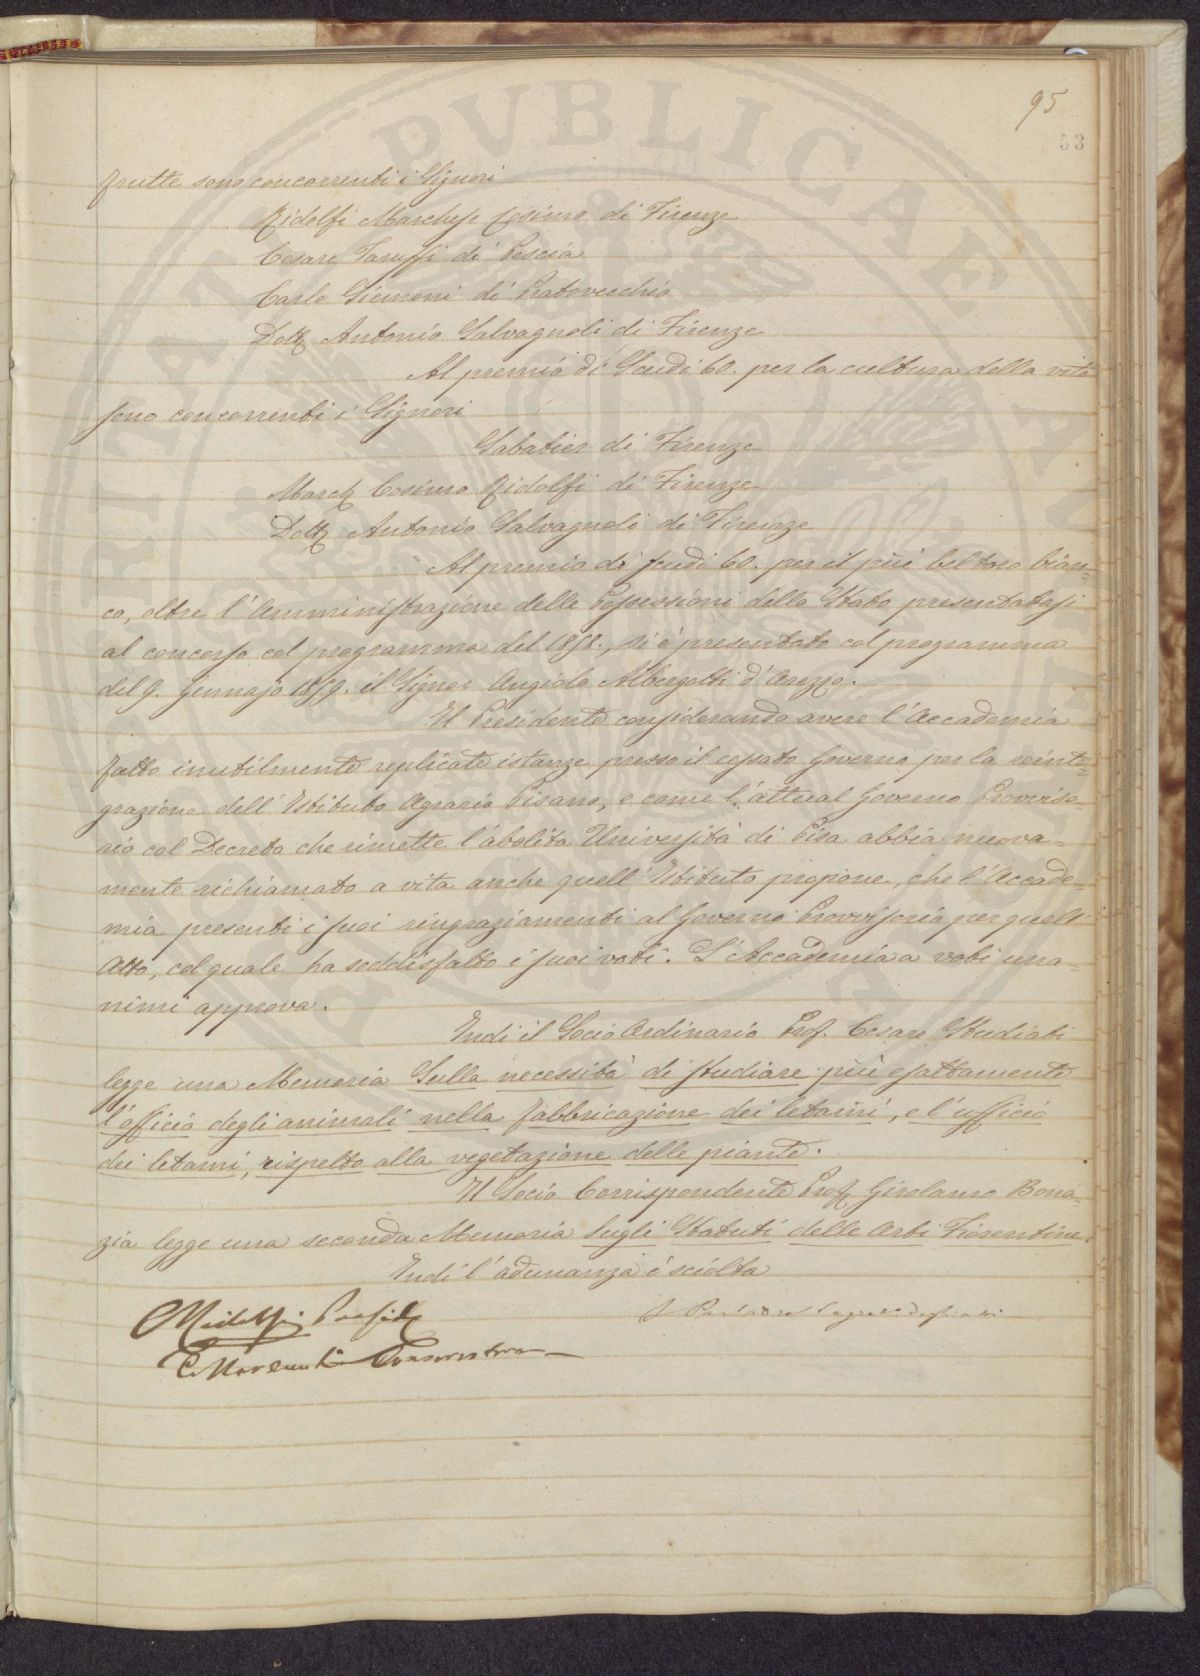 95
53
frutte sono concorrenti i Signori
Ridolfi Marchese Cosimo di Firenze
Cesare Taruffi di Pescia
Carlo Siemoni di Pratovecchio
Dott Antonio Salvagnoli di Firenze
Al premio di Scudi 60. per la cultura della vite
sono concorrenti i Signori
Sabatier di Firenze
March Cosimo Ridolfi di Firenze
Dott Antonio Salvagnoli di Firenze
Al premio di scudi 60. per il più bel toro bian=
co, oltre l'Amministrazione delle Possessioni dello Stato presentatasi
al concorso col programma del 1858., si è presentato col programma
del 9. Gennajo 1859. il Signor Angiolo Albergotti d'Arezzo.
Il Presidente considerando avere l'Accademia
fatto inutilmente replicate istanze presso il cessato Governo per la reinte=
grazione dell'Istituto Agrario Pisano, e come l'attual Governo Provviso=
rio col Decreto che rimette l'abolita Università di Pisa abbia nuova=
mente richiamato a vita anche quell'Istituto propone, che l'Accade=
mia presenti i suoi ringraziamenti al Governo Provvisorio per quell'
Atto, col quale ha soddisfatto i suoi voti. L'Accademia a voti una=
nimi approva.
Indi il Socio Ordinario Prof. Cesare Studiati
legge una Memoria Sulla necessità di studiare più esattamente
l'officio degli animali nella fabbricazione dei letami, e l'ufficio
dei letami, rispetto alla vegetazione delle piante.
Il Socio Corrispondente Prof Girolamo Bona=
zia legge una seconda Memoria Sugli Statuti delle Arti Fiorentine.
Indi l'adunanza è sciolta
CRidolfi Presid